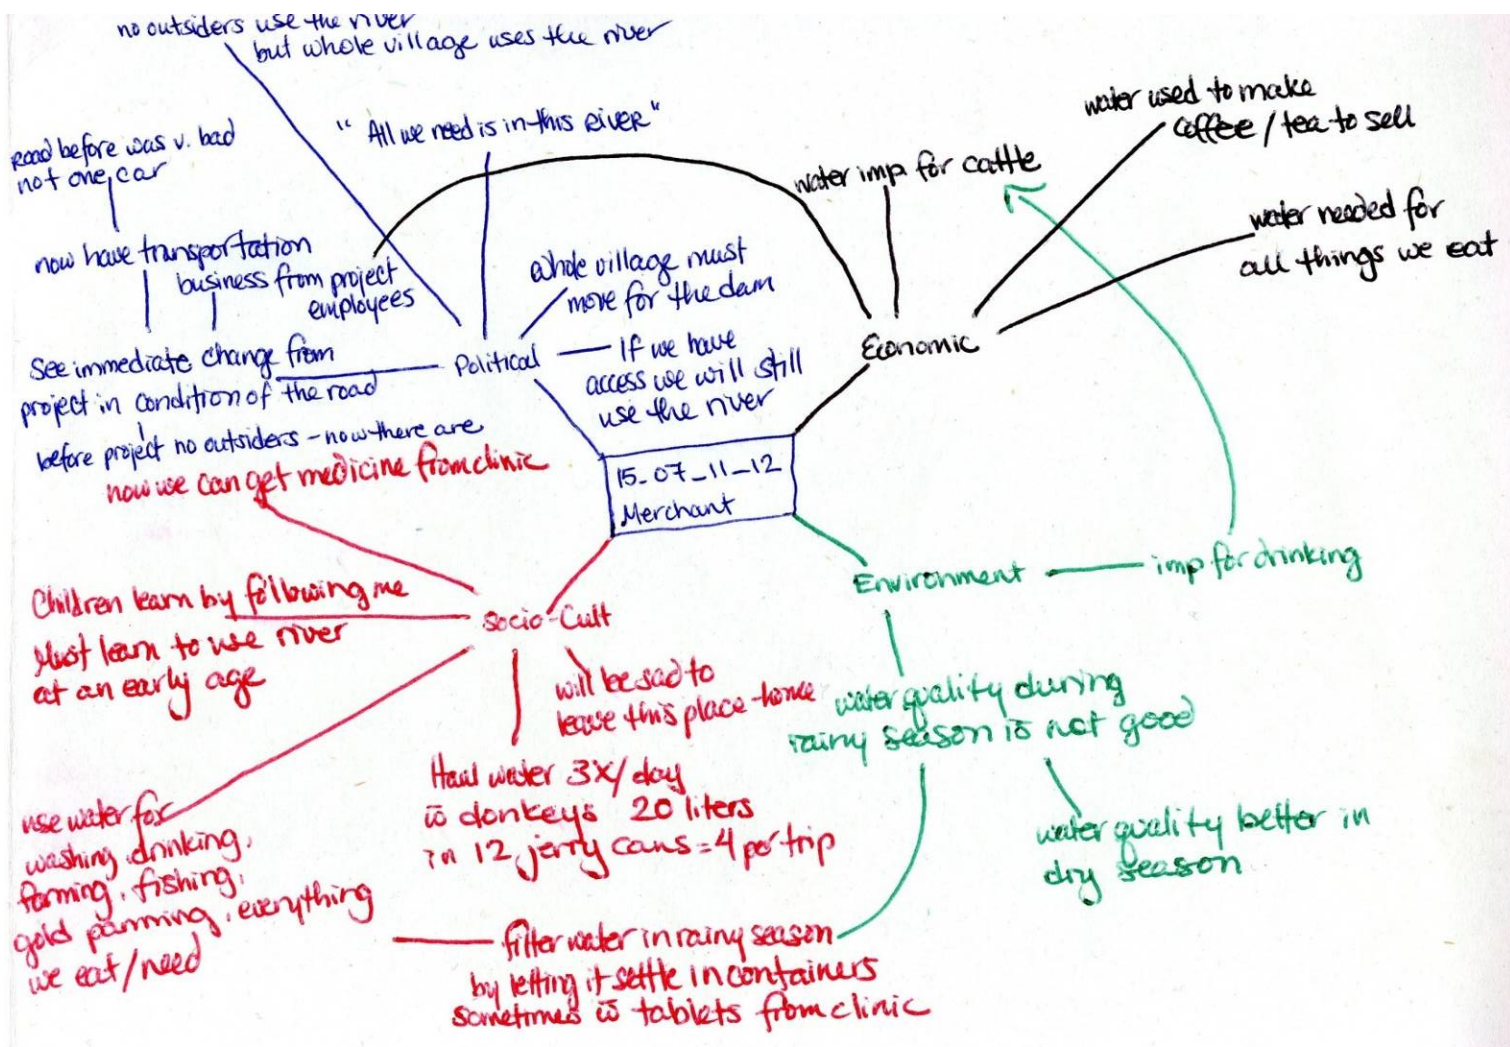 no outsiders use the river
but whole village uses the river
"All we need is in this River"
Road before was v. bad
not one car
now have transportation
business from project
employees
whole village must
move for the dam
See immediate change from
project in condition of the road
before project no outsiders - now there are
Political
If we have
access we will still
use the river
water imp for cattle
water used to make
coffee / tea to sell
water needed for
all things we eat
Economic
15_07_11_12
Merchant
now we can get medicine from clinic
Children learn by following me
Must learn to use river
at an early age
Socio-Cult
will be sad to
leave this place-home
Haul water 3x/day
w̄ donkeys 20 liters
in 12 jerry cans = 4 per trip
use water for
washing, drinking,
farming, fishing,
gold panning, everything
we eat/need
filter water in rainy season
by letting it settle in containers
sometimes w̄ tablets from clinic
Environment
imp for drinking
water quality during
rainy season is not good
water quality better in
dry season